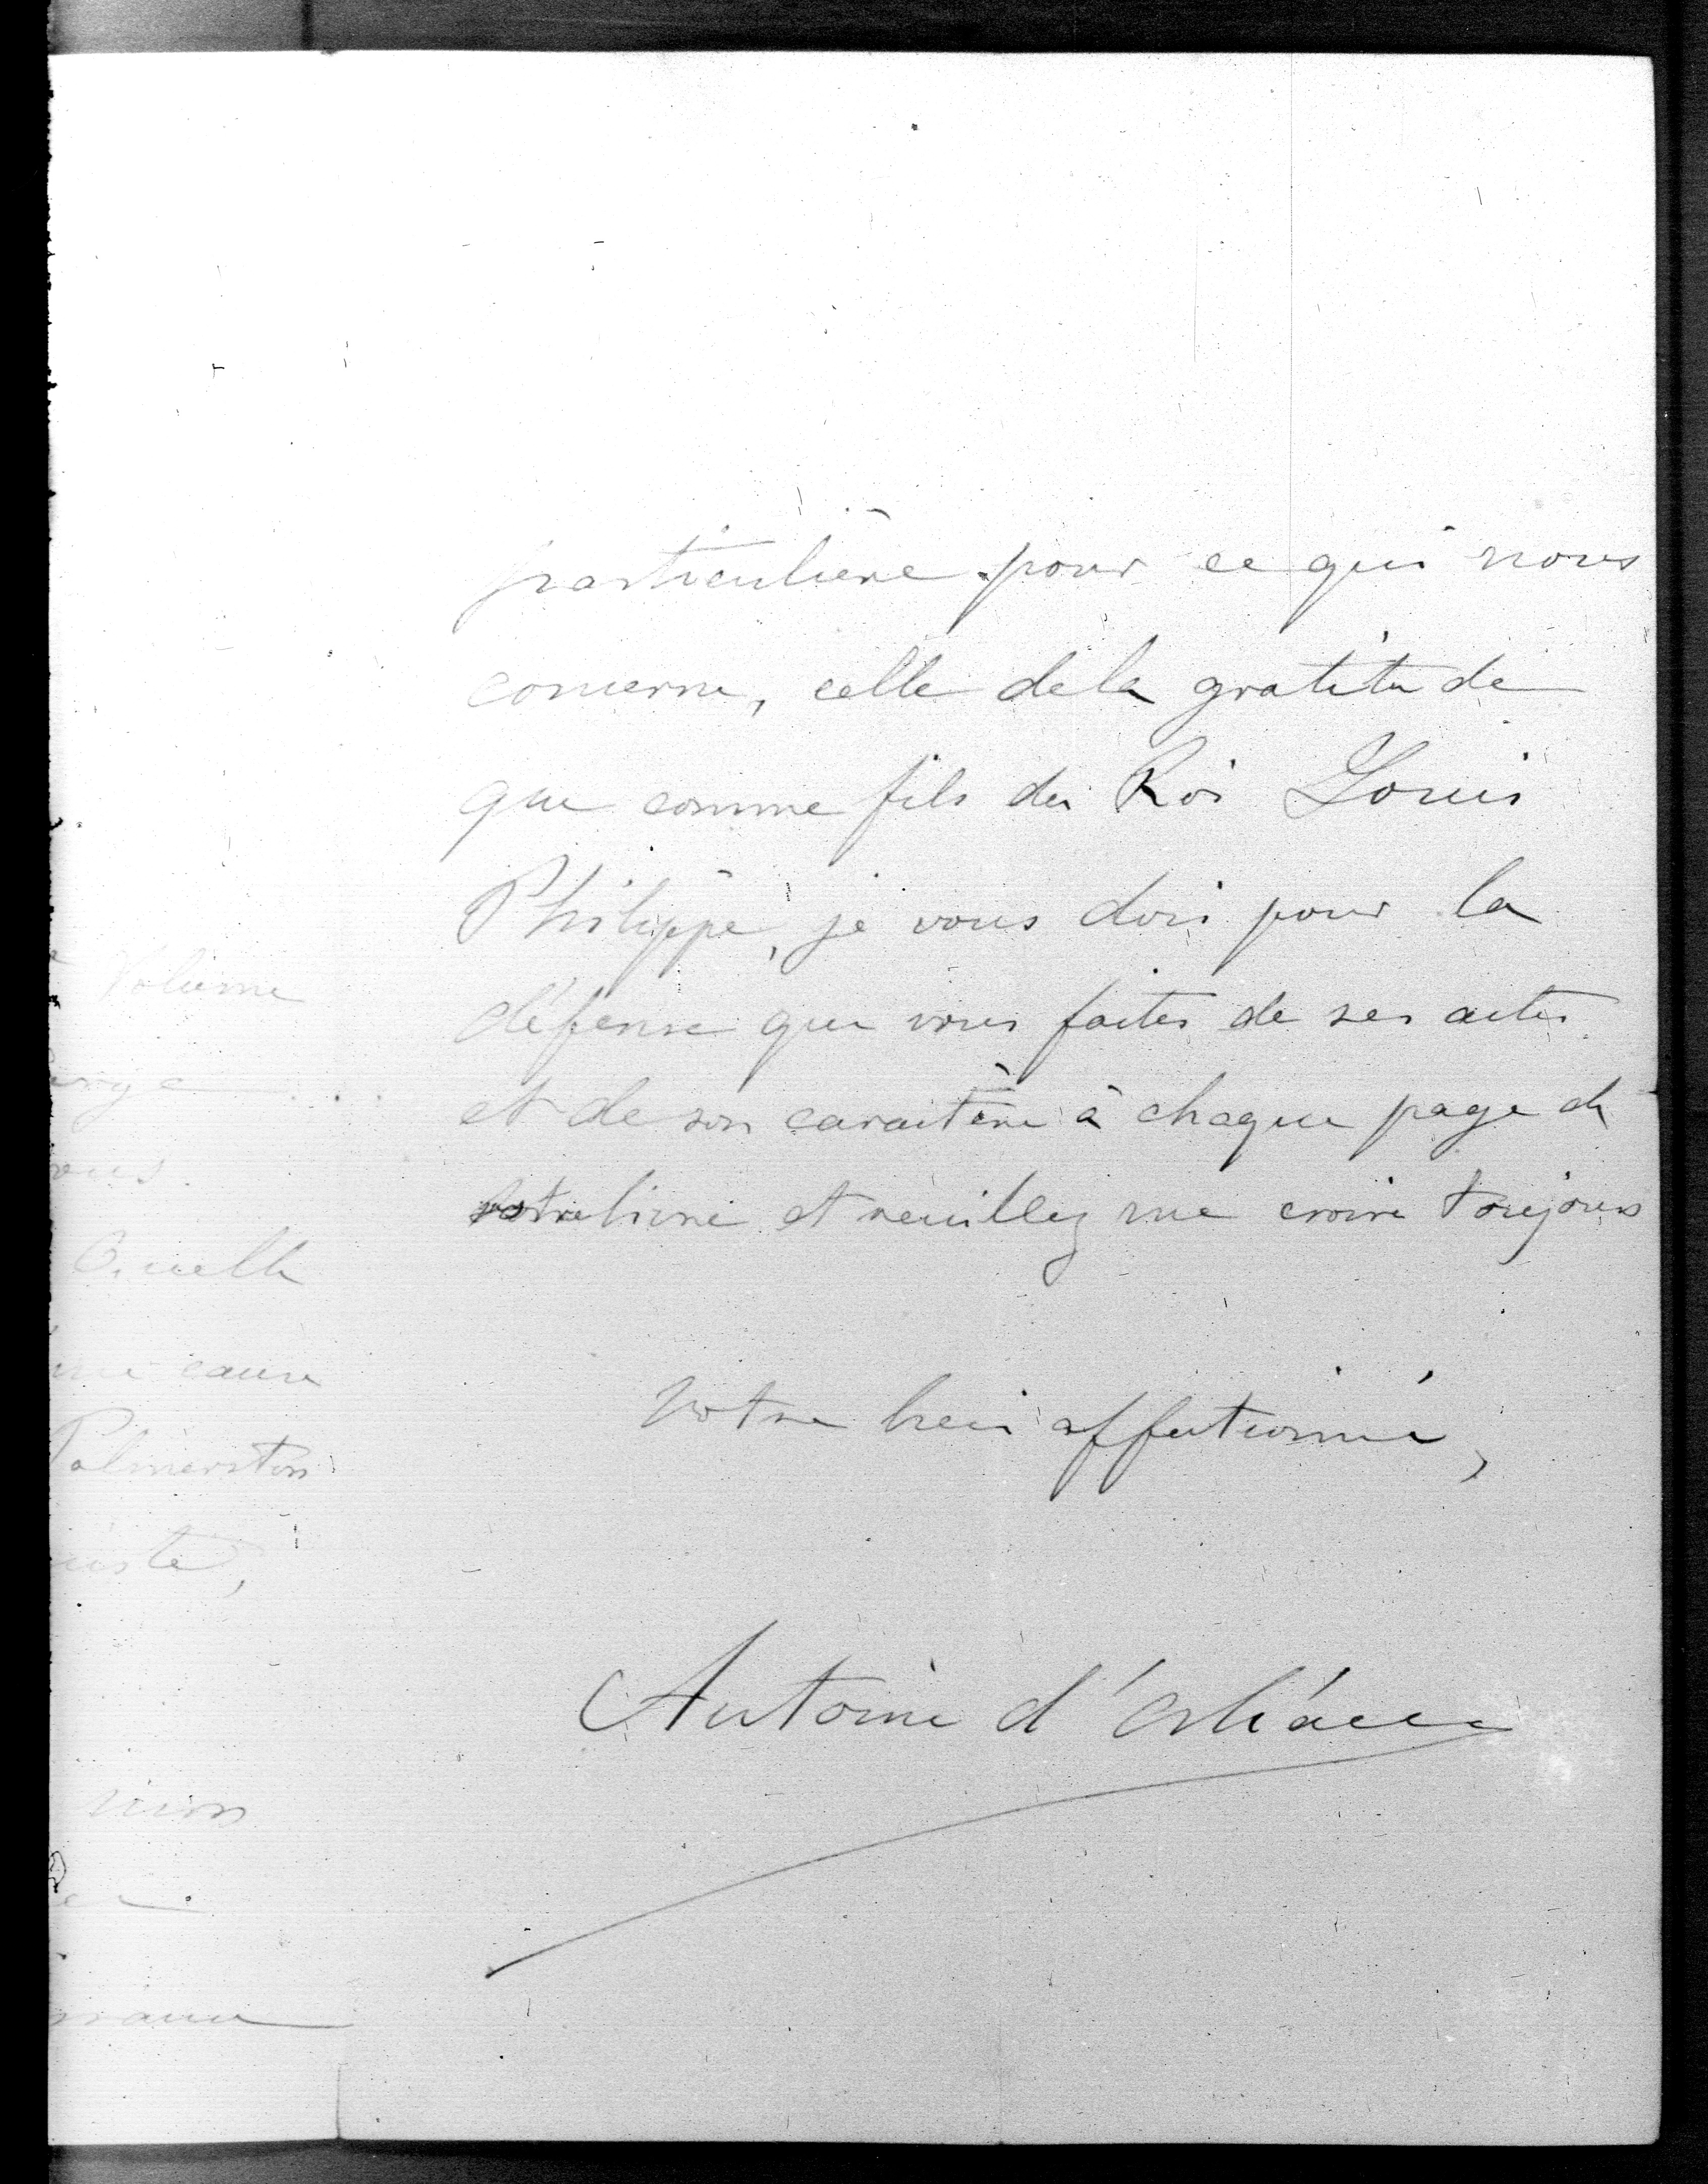 particulière pour ce qui nous
concerne, celle de la gratitude
que comme fils du Roi Louis
Philippe, je vous dois pour la
défense que vous faites de ses actes
et de son caractère à chaque page de
votre livre et veuillez me croire toujours
Votre bien affectionné,
Antoine d'Orléans
Volume
cause
Palmerston